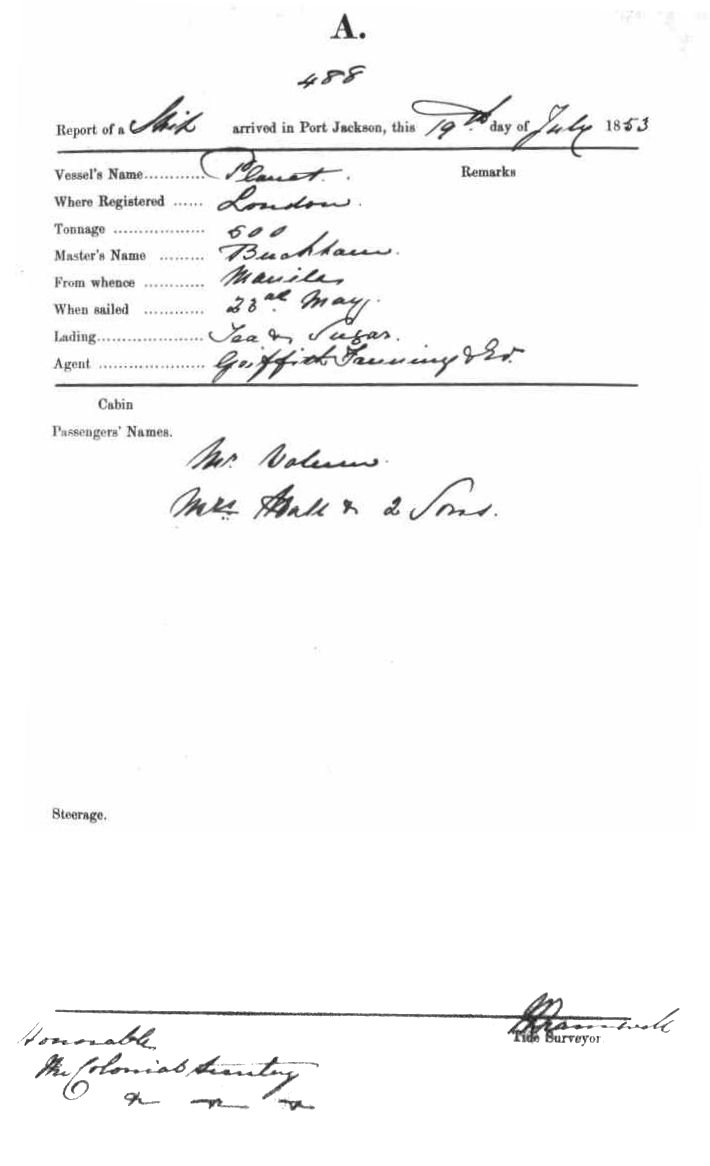 A.
488
Report of a Ship arrived in Port Jackson, this 19th day of July 1853
Vessel's Name............ Planet. Remarks
Where Registered ...... London.
Tonnage .................. 600
Master's Name .........
From whence ............ Manila
When sailed ............ 23rd May.
Lading..................... Tea & Sugar.
Agent ..................... Griffith Fanning & Co.
Cabin
Passengers' Names.
Mr.
Mrs Hall & 2 Sons.
Steerage.
Tide Surveyor
Honorable
The Colonial Secretary